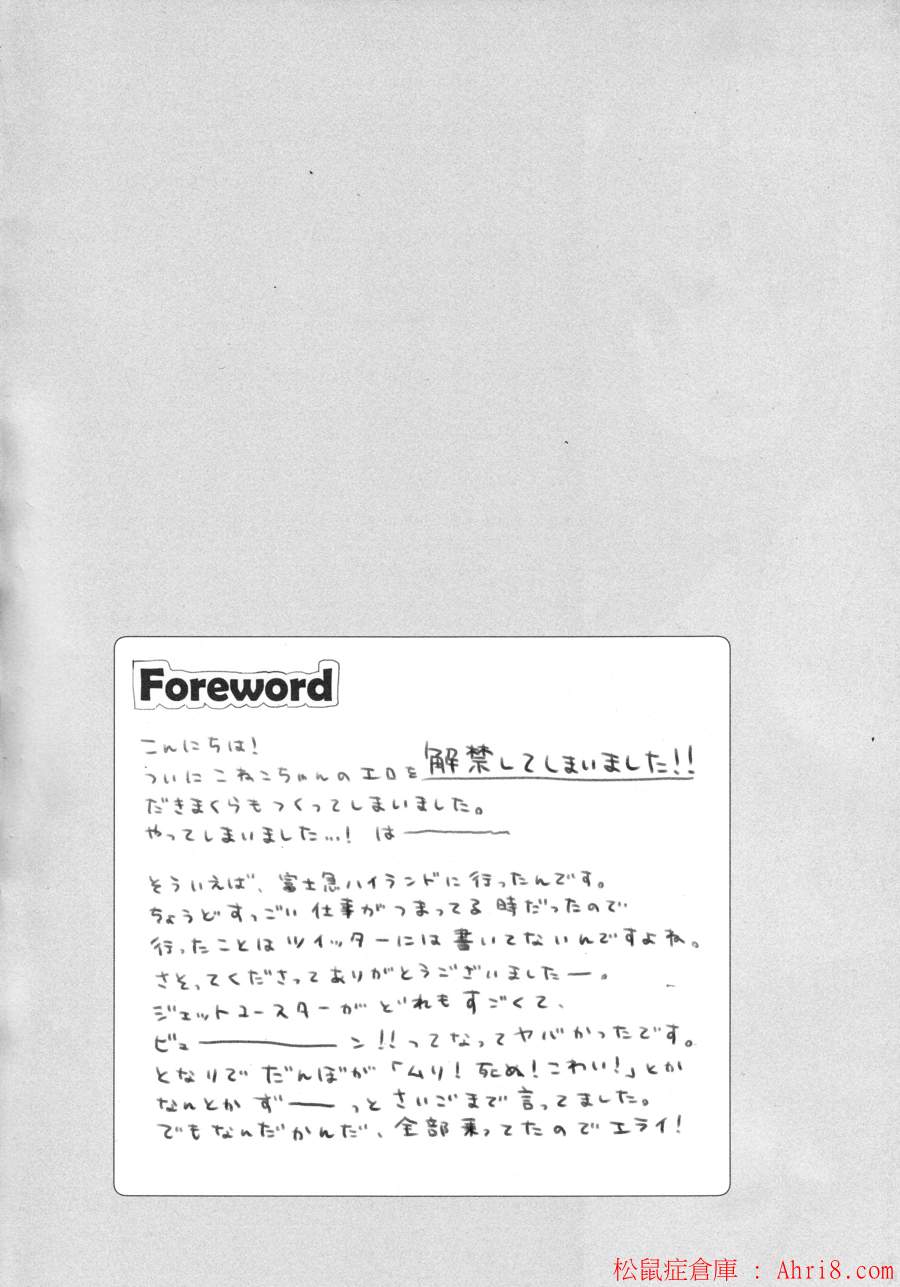 Foreword
こんにちは!
ついに こねこちゃんの エロを 解禁してしまいました!!
だきまくらも つくってしまいました。
やってしまいました…! はー
そういえば、富士急ハイランドに 行ったんです。
ちょうど すっごい 仕事が つまってる 時だったので
行ったことは ツイッターには 書いてないんですよね。
さそってくださって ありがとうございましたー。
ジェットコースターが どれも すごくて、
ビューーン!! ってなって ヤバかったです。
となりで だんぼが 「ムリ! 死ぬ! こわい!」とか
なんとか ずーっと さいごまで 言ってました。
でも なんだかんだ、全部 乗ってたので エライ!
松鼠症倉庫 : Ahri8.com